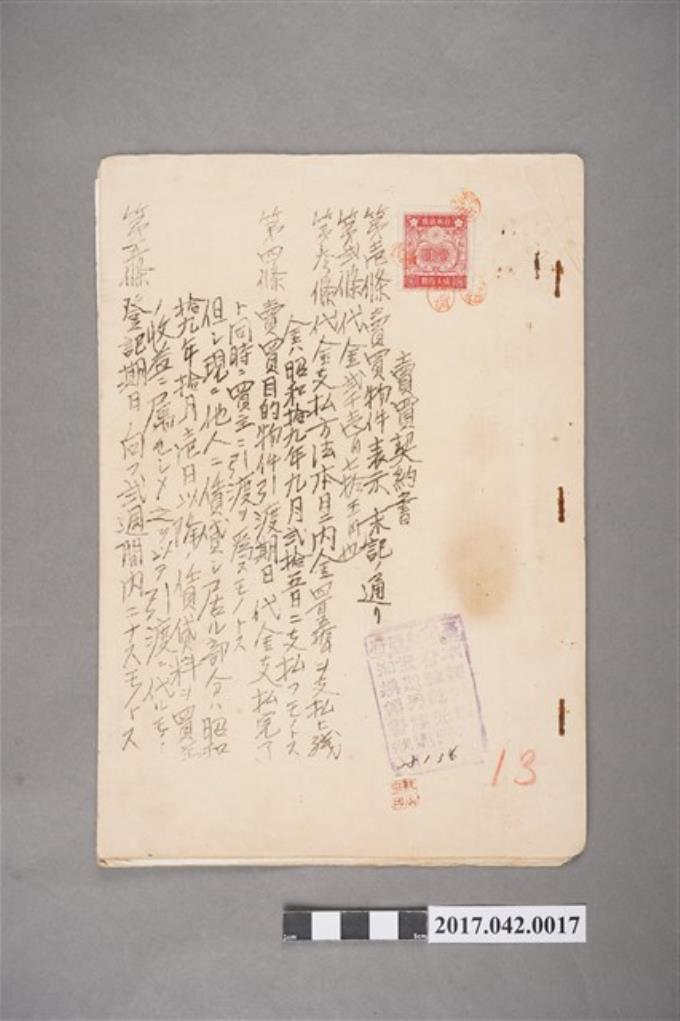 賣買契約書
第壱條 賣買物件表示 末記ノ通リ
第貳條 代金貳千壱百七拾五円也
第参條 代金支払方法本日ニ内金四百 ヲ支払ヒ残
金ハ昭和拾九年九月貳拾五日ニ支払フモノトス
第四條 賣買目的物件引渡期日 代金支払完了
ト同時ニ買主ニ引渡ヲ為スモノトス
但シ現ニ他人ニ賃貸シ居ル部分ハ昭和
拾九年拾月壱日以降ノ賃貸料ヲ買主
ノ收益ニ属セシメ之ヲ以テ引渡ニ代ルモノ
第五條 登記期日 向フ貳週間内ニナスモノトス
13
2017.042.0017